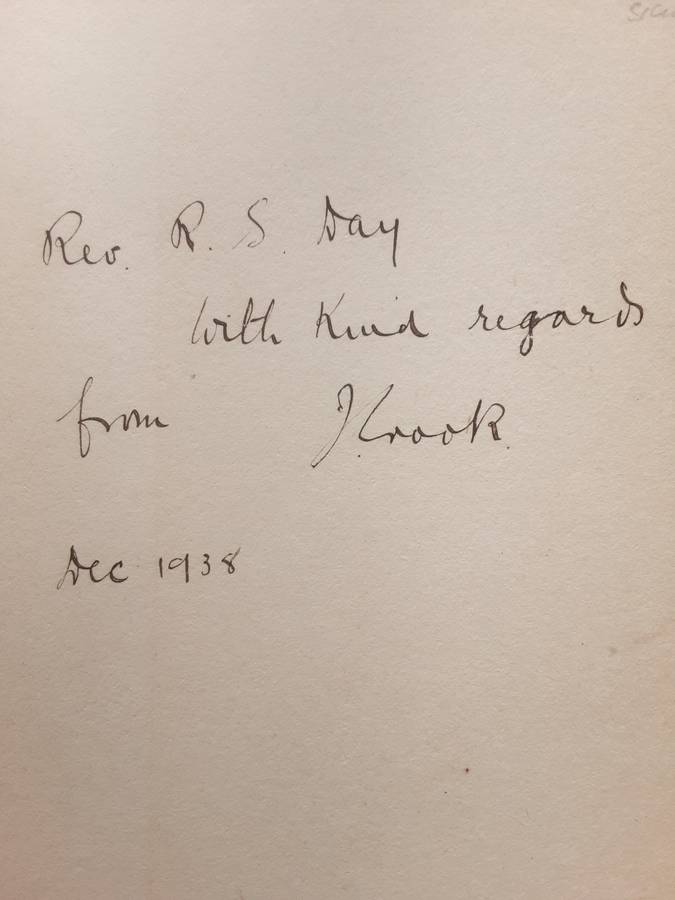 Rev. R. S. Day
With Kind regards
from J. Crook.
Dec 1938